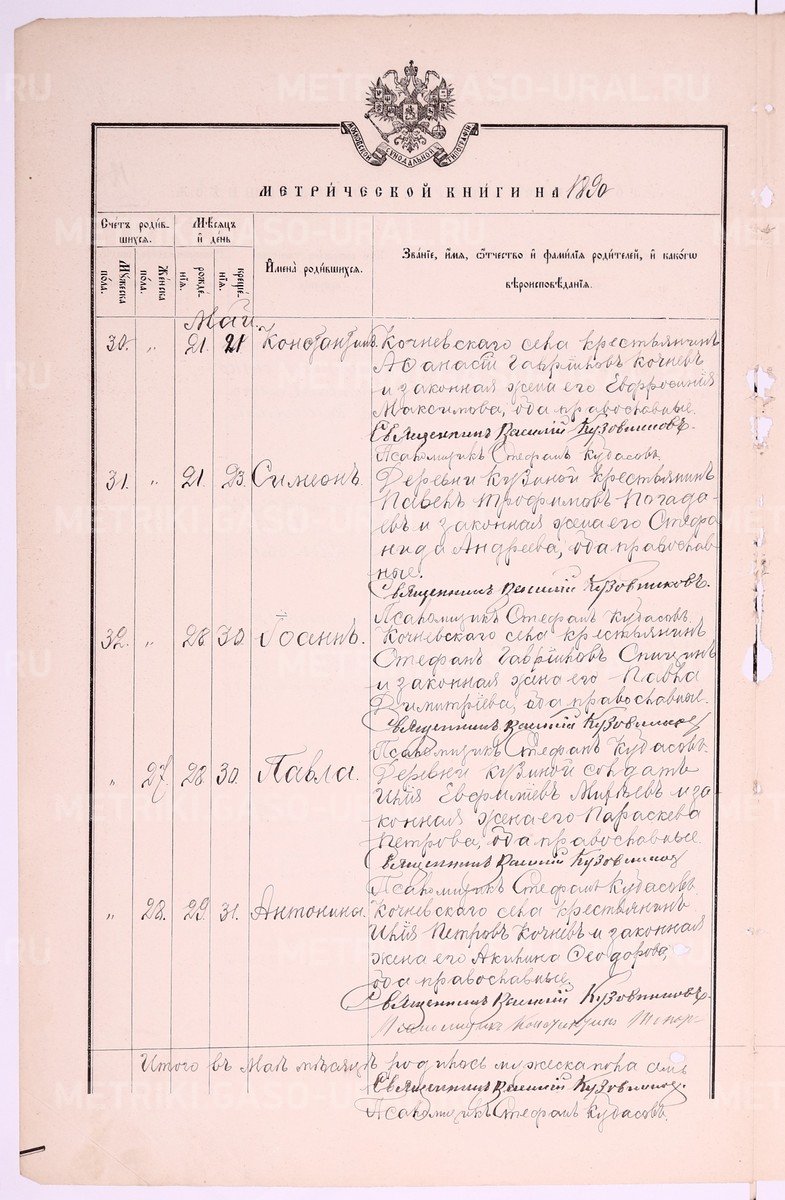 МОСКОВСКОЙ СѴНОДАЛЬНОЙ ТИПОГРАФІИ
МЕТРИ́ЧЕСКОЙ КНИ́ГИ НА 1890
Сче́тъ роди́вшихся.
Мꙋ́жеска по́ла.
Же́нска по́ла.
Мѣ́сяцъ и҆ де́нь
рожде́нїѧ.
креще́нїѧ.
И҆мена̀ роди́вшихся.
Зва́нїе, и҆́мѧ, ѻ҆́тчество и҆ фами́лїѧ роди́телей, и҆ како́гѡ вѣроисповѣ́данїѧ.
Май.
30. „ 21. 21 Константинъ. Кочневскаго села крестьянинъ
Аѳанасій Гавріиловъ Кочневъ
и законная жена его Евфросинія
Максимова, оба православные.
Священникъ Василій Кузовниковъ.
Псаломщикъ Стефанъ Кудасовъ.
31. „ 21. 23. Симеонъ. Деревни Кузиной крестьянинъ
Павелъ Трофимовъ Погада-
евъ и законная жена его Стефа
нида Андреева, оба православ
ные.
Священникъ Василій Кузовниковъ.
Псаломщикъ Стефанъ Кудасовъ.
32. „ 28 30 Іоаннъ. Кочневскаго села крестьянинъ
Стефанъ Гавріиловъ Спицинъ
и законная жена его Павла
Димитріева, оба православные.
Священникъ Василій Кузовниковъ
Псаломщикъ Стефанъ Кудасовъ.
„ 27 28 30. Павла. Деревни Кузиной солдатъ
Илія Евфиміевъ и за
конная жена его Параскева
Петрова, оба православные.
Священникъ Василій Кузовниковъ
Псаломщикъ Стефанъ Кудасовъ.
„ 28. 29. 31. Антонина. Кочневскаго села крестьянинъ
Илія Петровъ Кочневъ и законная
жена его Акилина Ѳеодорова,
оба православные.
Священникъ Василій Кузовниковъ.
Псаломщикъ Константинъ
Итого въ Маѣ мѣсяцѣ родилось мужеска пола
Священникъ Василій Кузовниковъ.
Псаломщикъ Стефанъ Кудасовъ.